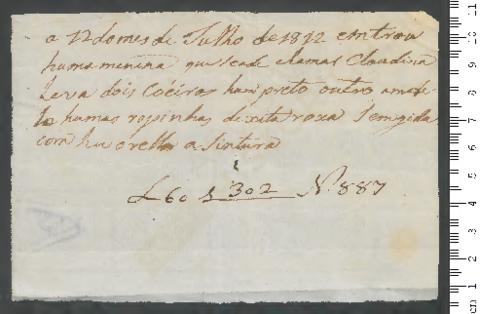 a 12 do mes de Julho de 1812 entrou
huma menina que se ade chamar Claudina
Leva dois Coeiros hum preto outro amare-
lo humas ropinhas de xita roxa Semgida
com hu orello a Sintura
L 60 $ 302 Nº 887